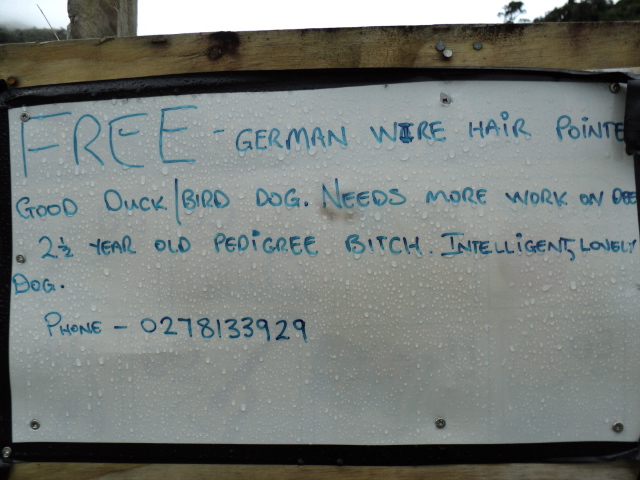 FREE - GERMAN WIRE HAIR POINTE
GOOD DUCK/BIRD DOG. NEEDS MORE WORK ON DEE
2½ YEAR OLD PEDIGREE BITCH. INTELLIGENT, LOVELY
DOG.
PHONE - 0278133929